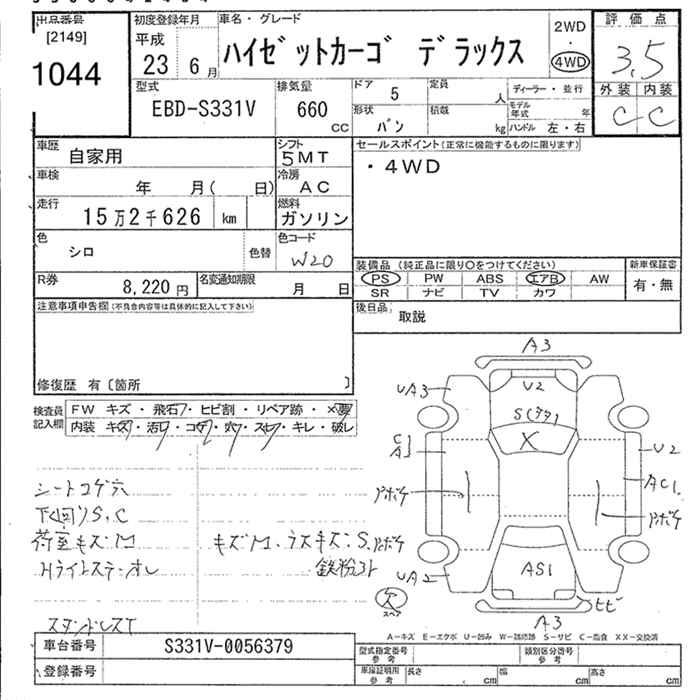 出品番号
[2149]
1044
初度登録年月
平成
23 6月
車名・グレード
ハイゼットカーゴ デラックス
2WD
・
4WD
評価点
3.5
外装 内装
C C
型式
EBD-S331V
排気量
660
CC
ドア 5
定員
人
形状 バン
積載
kg
ディーラー・並行
モデル年式 年
ハンドル 左・右
車歴 自家用
シフト 5MT
車検 年 月( 日)
冷房 AC
走行 15万2千626 km
燃料 ガソリン
色 シロ
色替
色コード W20
R券 8,220円
名変通知期限 月 日
セールスポイント(正常に機能するものに限ります)
・4WD
装備品 (純正品に限り○をつけてください)
PS PW ABS エアB AW
SR ナビ TV カワ
新車保証書
有・無
後日品 取説
注意事項申告欄(不具合内容等は具体的に記入して下さい)
修復歴 有〔箇所 〕
検査員記入欄
FW キズ・飛石・ヒビ割・リペア跡・×要
内装 キズ・汚レ・コゲ・穴・スレ・キレ・破レ
シートコゲ穴
下回りS,C
荷室キズM
キズM・ウスキズ:S,
鉄粉
A3
UA3
U2
S
X
U2
AC1
UA2
AS1
ヒビ
A3
欠
スペア
A-キズ E-エクボ U-凹み W-補修跡 S-サビ C-腐食 XX-交換済
車台番号 S331V-0056379
登録番号
型式指定番号 参考
類別区分番号 参考
車庫証明用 参考
長さ cm 幅 cm 高さ cm